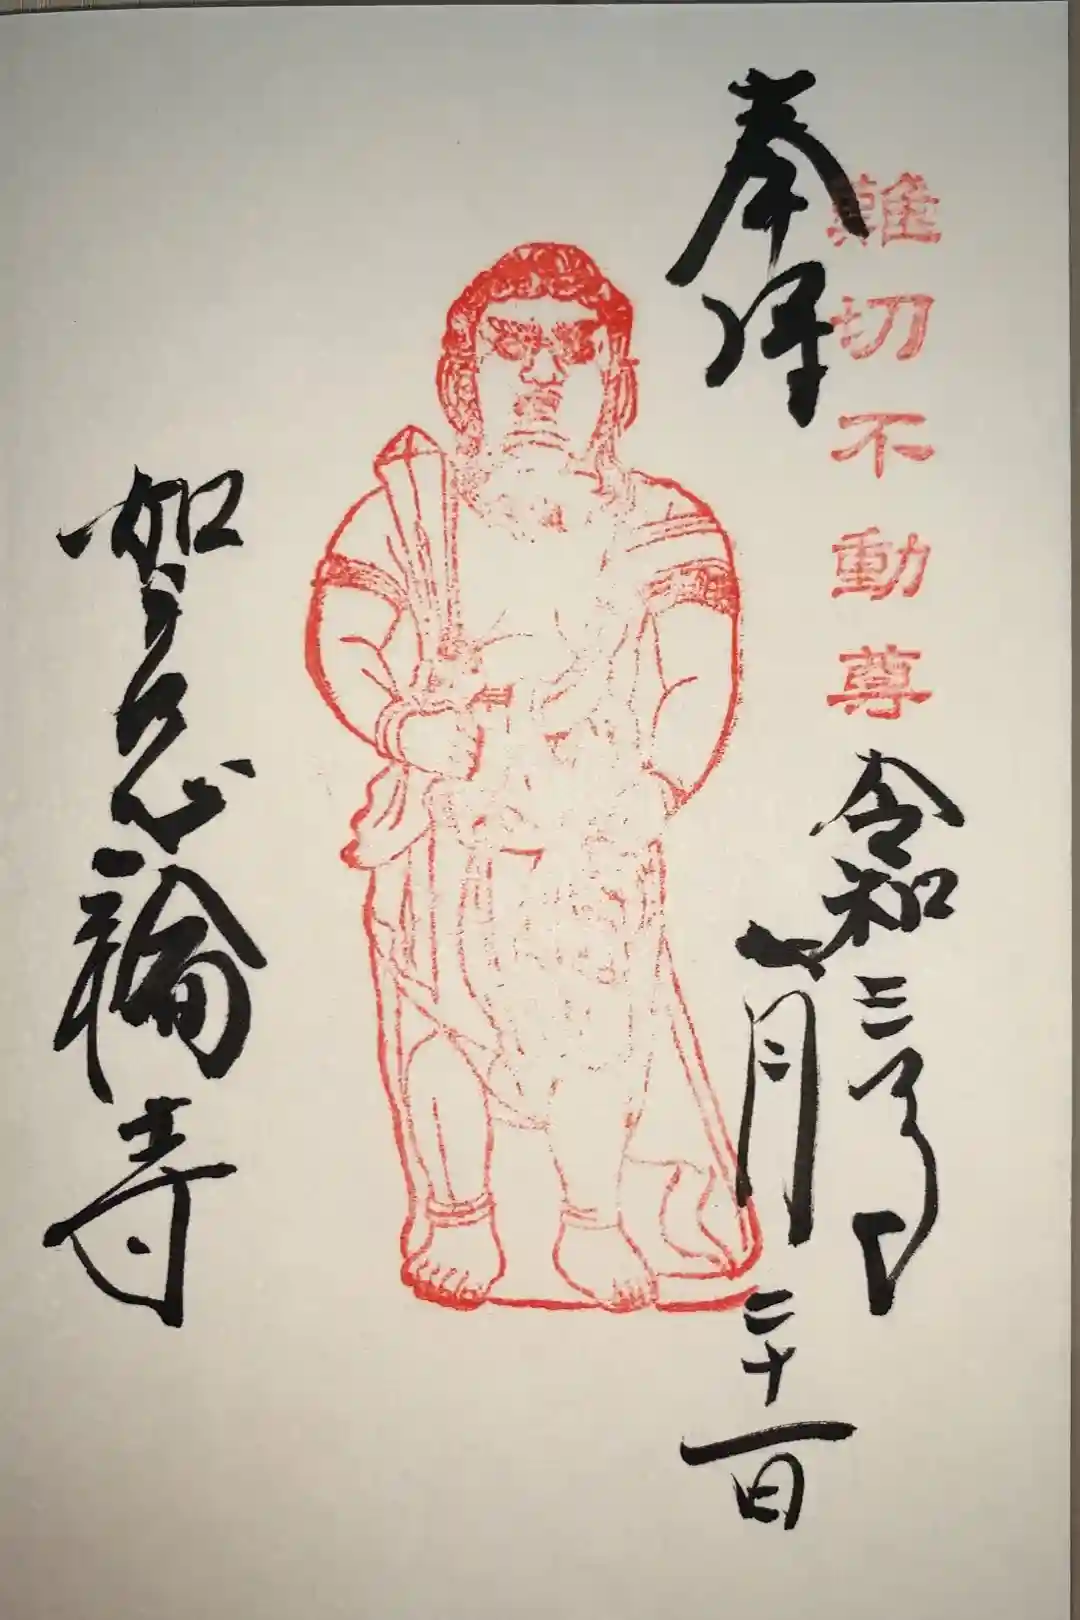 奉拝
難切不動尊
令和三年
月二十一日
如意輪寺